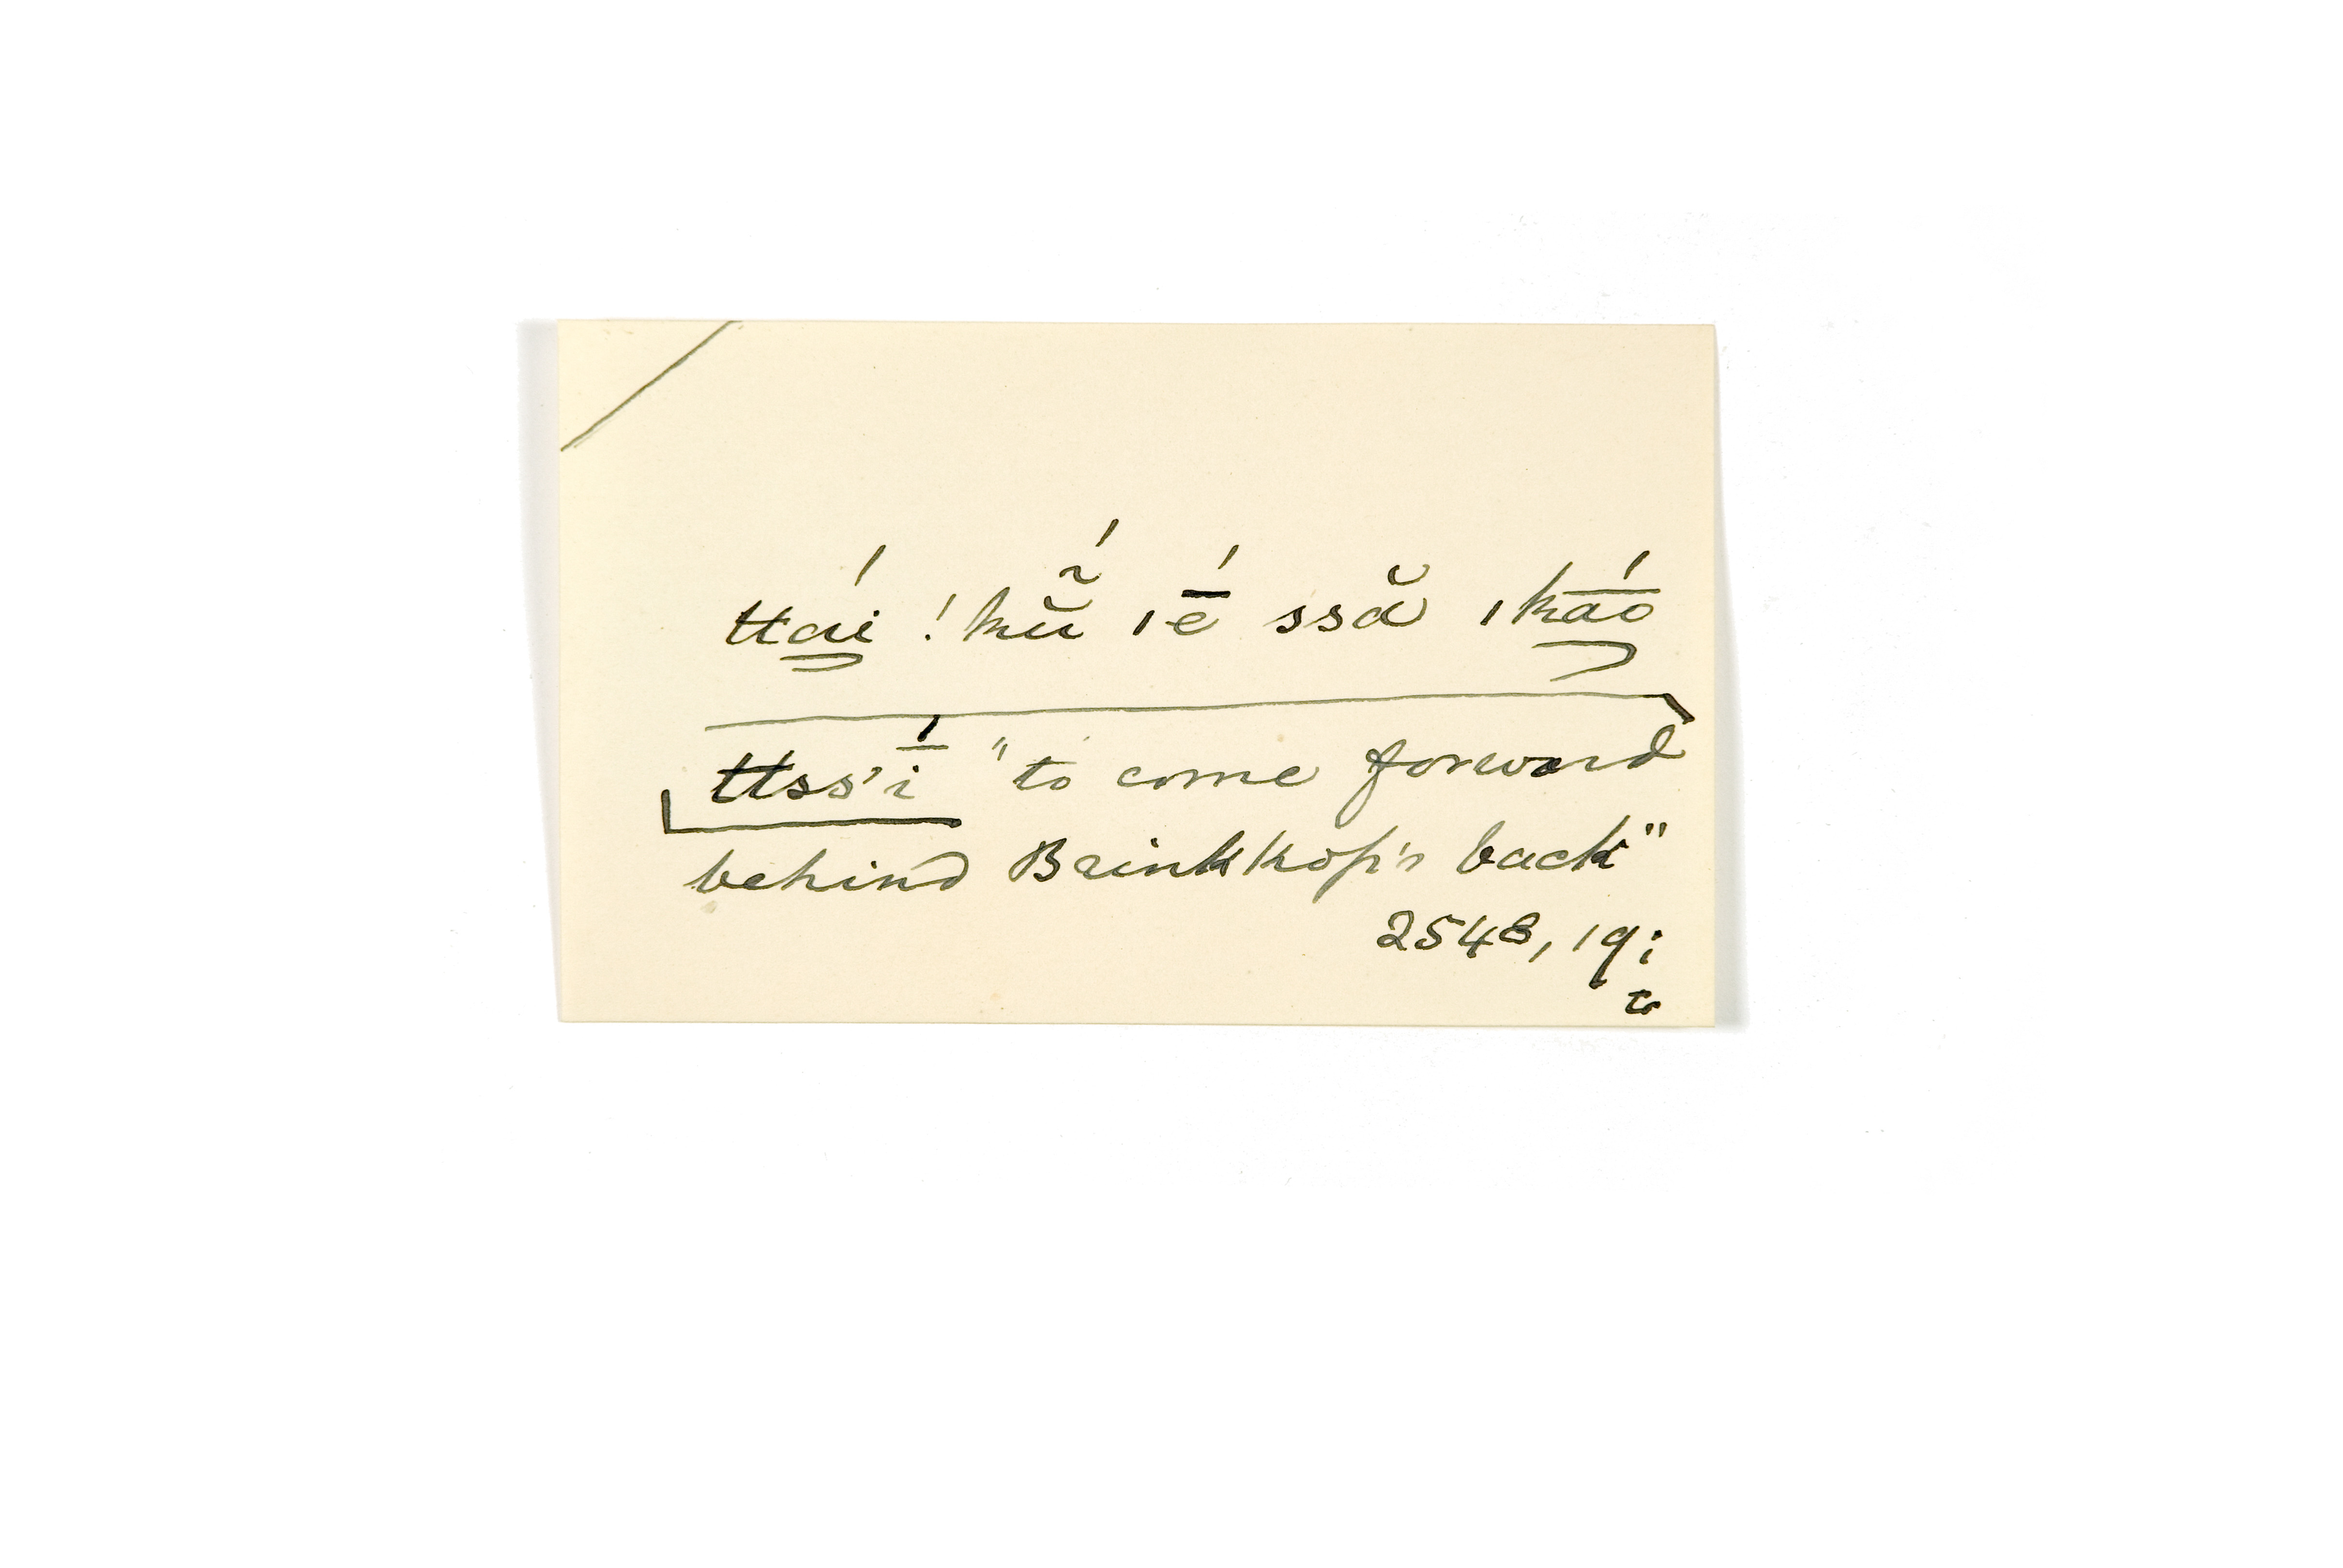 ttái !kū̃́ ıḗ ssă ıkā́o
ttss'ī́ "to come forward
behind Brinkkop's back"
2548, 19;